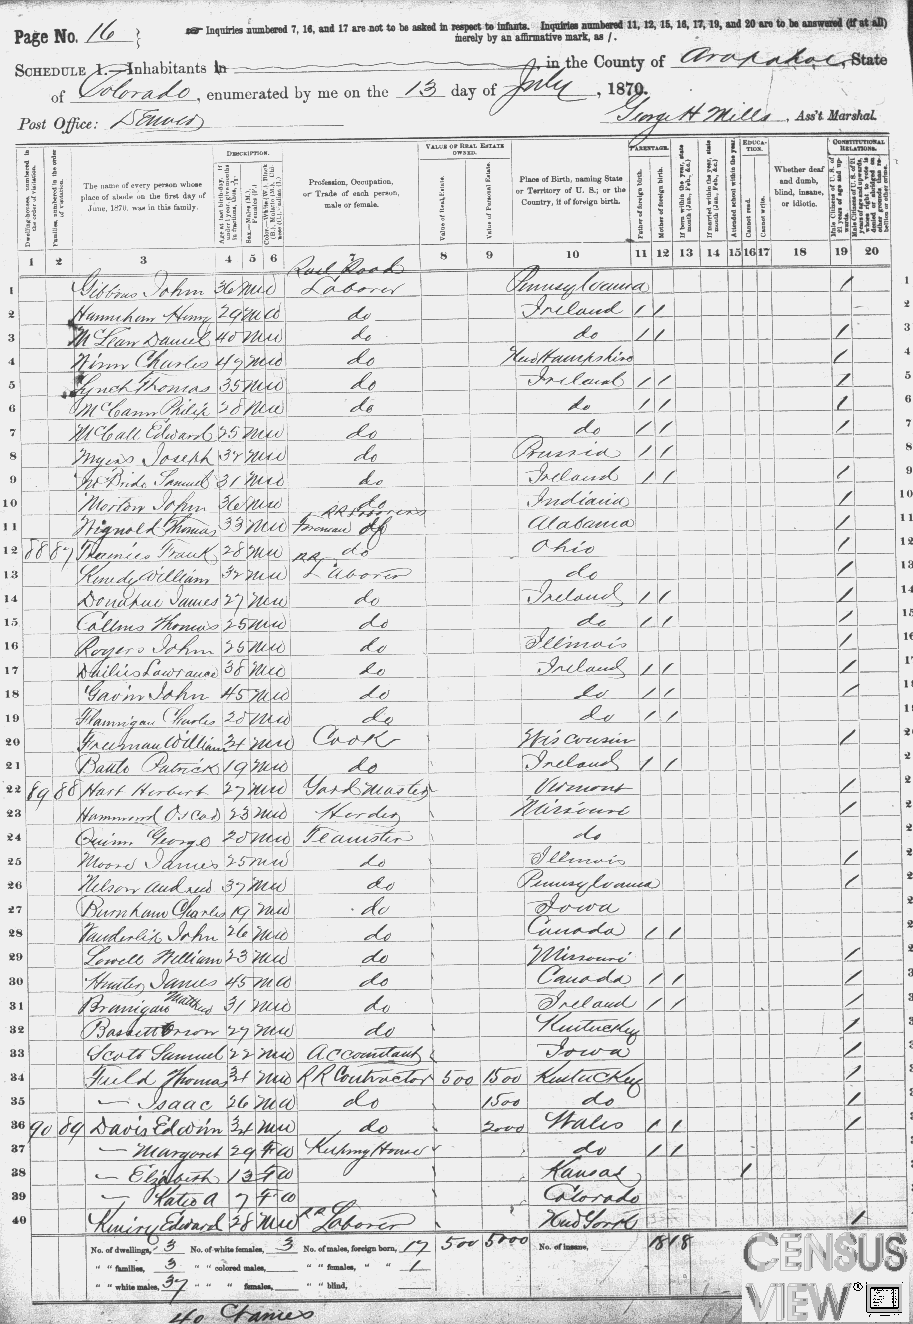 Page No. 16
Inquiries numbered 7, 16, and 17 are not to be asked in respect to infants. Inquiries numbered 11, 12, 15, 16, 17, 19, and 20 are to be answered (if at all)
merely by an affirmative mark, as /.
SCHEDULE 1.—Inhabitants in in the County of Arapahoe, State
of Colorado, enumerated by me on the 13 day of July, 1870.
Post Office: Denver George H Mills, Ass't Marshal.
DESCRIPTION. VALUE OF REAL ESTATE OWNED. PARENTAGE. EDUCATION. CONSTITUTIONAL RELATIONS.
Dwelling-houses, numbered in the order of visitation.
Families, numbered in the order of visitation.
The name of every person whose place of abode on the first day of June, 1870, was in this family.
Profession, Occupation, or Trade of each person, male or female.
Value of Real Estate.
Value of Personal Estate.
Place of Birth, naming State or Territory of U. S.; or the Country, if of foreign birth.
Father of foreign birth.
Mother of foreign birth.
Attended school within the year.
Cannot read.
Cannot write.
Whether deaf and dumb, blind, insane, or idiotic.
1 2 3 4 5 6 7 8 9 10 11 12 13 14 15 16 17 18 19 20
1 Gibbons John 36 M W Rail Road Laborer Pennsylvania / 1
2 Henry 29 M W do Ireland / / 2
3 McLean Daniel 40 M W do do / / / 3
4 Charles 47 M W do New Hampshire / 4
5 Lynch Thomas 35 M W do Ireland / / / 5
6 McCann Philip 28 M W do do / / / 6
7 McCall Edward 25 M W do do / / / 7
8 Myers Joseph 32 M W do Prussia / / 8
9 McBride Samuel 31 M W do Ireland / / / 9
10 Morton John 36 M W do Indiana / 10
11 Thomas 33 M W Foreman of Alabama / 11
12 88 87 Frank 28 M W do Ohio / 12
13 Kenedy William 32 M W RR Laborer do / 13
14 Donahue James 27 M W do Ireland / / / 14
15 Collins Thomas 25 M W do do / / / 15
16 Rogers John 25 M W do Illinois / 16
17 Lawrance 38 M W do Ireland / / / 17
18 Gavin John 45 M W do do / / / 18
19 Flannigan Charles 20 M W do do / / 19
20 Freeman William 34 M W Cook Wisconsin / 20
21 Patrick 19 M W do Ireland / /
22 89 88 Hart Herbert 27 M W Yard Master Vermont /
23 Hammond Oscar 23 M W Herder Missouri /
24 Quinn George 20 M W Teamster do
25 Moore James 25 M W do Illinois /
26 Nelson Andrew 37 M W do Pennsylvania /
27 Burnham Charles 19 M W do Iowa
28 Vanderlip John 26 M W do Canada / /
29 Lowell William 23 M W do Missouri /
30 Hunter James 45 M W do Canada / / /
31 Branigan Mathew 31 M W do Ireland / / /
32 Bassett Orson 27 M W do Kentuckey /
33 Scott Samuel 22 M W Accountant Iowa /
34 Field Thomas 34 M W RR Contractor 500 1500 Kentuckey /
35 — Isaac 26 M W do 1500 do /
36 90 89 Davis Edwin 34 M W do 2000 Wales / / /
37 — Margaret 29 F W Keeping House do / /
38 — Elizabeth 13 F W Kansas /
39 — Katie A 7 F W Colorado
40 Edward 28 M W RR Laborer New York /
No. of dwellings, 3 No. of white females, 3 No. of males, foreign born, 17 500 5000 No. of insane, 18 18
" " families, 3 " " colored males, " " females, " " 1
" " white males, 37 " " " females, " " blind,
40 Names
CENSUS
VIEW®